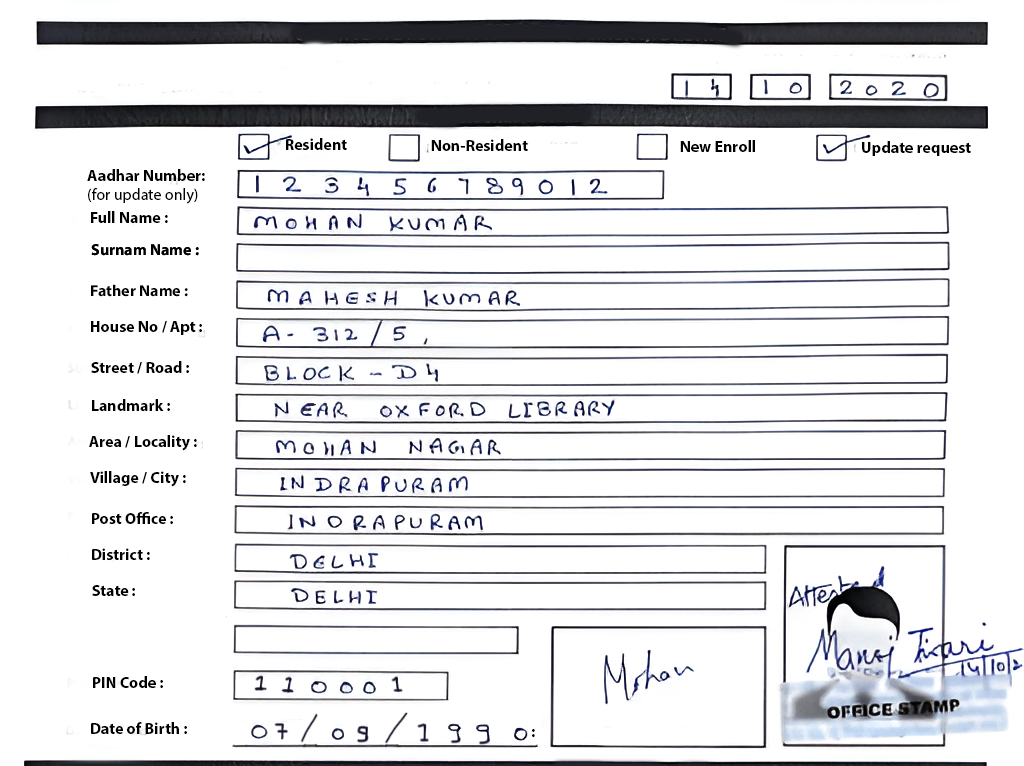 14 10 2020
Resident Non-Resident New Enroll Update request
Aadhar Number: 123456789012
(for update only)
Full Name : MOHAN KUMAR
Surnam Name :
Father Name : MAHESH KUMAR
House No / Apt : A- 312/5,
Street / Road : BLOCK - D4
Landmark : NEAR OXFORD LIBRARY
Area / Locality : MOHAN NAGAR
Village / City : INDRAPURAM
Post Office : INDRAPURAM
District : DELHI
State : DELHI
Attested
Mohan
Manoj Tiwari
14/10/2
PIN Code : 110001
OFFICE STAMP
Date of Birth : 07/09/1990: